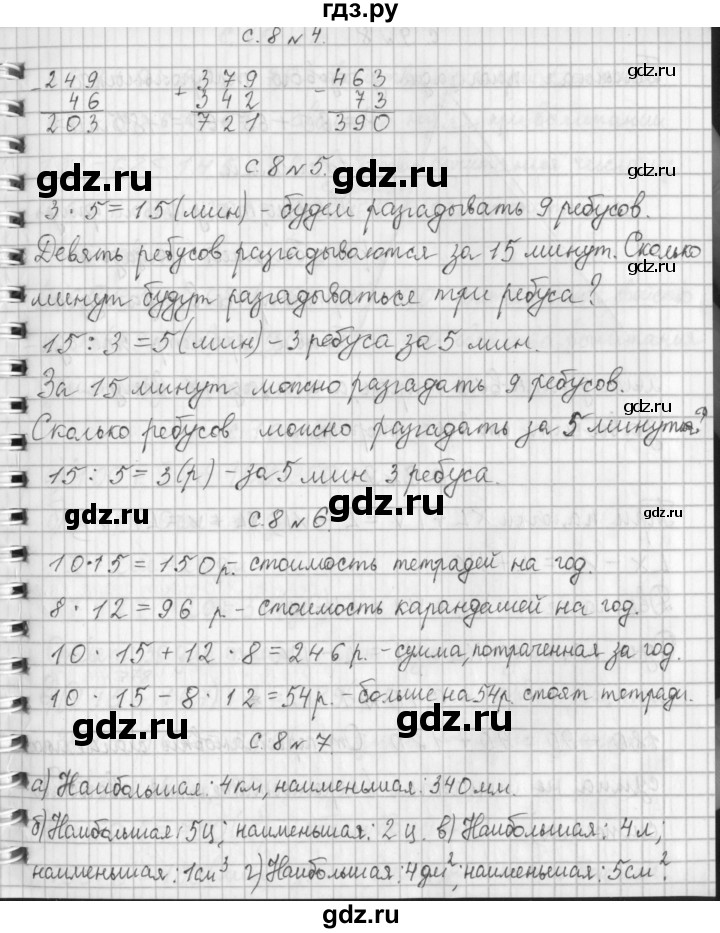 гдз.ру
с. 8 № 4.
- 249 + 379 - 463
46 342 73
203 721 390
с. 8 № 5.
3 · 5 = 15 (мин) - будем разгадывать 9 ребусов.
Девять ребусов разгадываются за 15 минут. Сколько
минут будут разгадываться три ребуса?
15 : 3 = 5 (мин) - 3 ребуса за 5 мин.
За 15 минут можно разгадать 9 ребусов.
Сколько ребусов можно разгадать за 5 минут?
15 : 5 = 3 (р) - за 5 мин 3 ребуса.
с. 8 № 6.
10 · 15 = 150 р. стоимость тетрадей на год.
8 · 12 = 96 р - стоимость карандашей на год.
10 · 15 + 12 · 8 = 246 р. - сумма, потраченная за год.
10 · 15 - 8 · 12 = 54 р. - больше на 54 р. стоят тетради.
с. 8 № 7
а) Наибольшая: 4 км, наименьшая: 340 мм.
б) Наибольшая: 5 ц; наименьшая: 2 ц. в) Наибольшая: 4 л;
наименьшая: 1 см³ г) Наибольшая: 4 дм²; наименьшая: 5 см².
gdz.ru
gdz.ru
gdz.ru
gdz.ru
gdz.ru
gdz.ru
gdz.ru
gdz.ru
gdz.ru
gdz.ru
gdz.ru
gdz.ru
gdz.ru